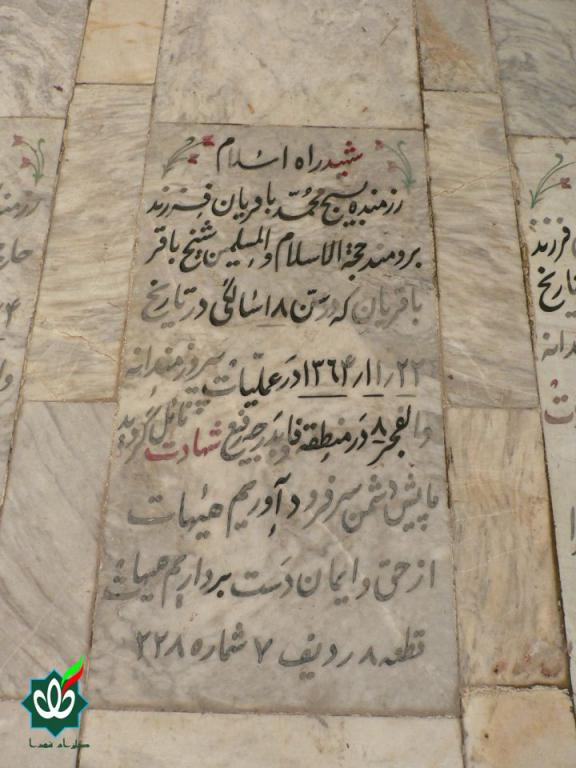 شهید راه اسلام
رزمنده بسیج محمد باقریان فرزند
برومند حجة الاسلام والمسلمین شیخ باقر
باقریان که در سن ۱۸ سالگی در تاریخ
۱۳۶۴/۱۱/۲۲ در عملیات پیروزمندانه
والفجر ۸ در منطقه فاو بدرجه رفیع شهادت نائل گردید
ما پیش دشمن سر فرود آوریم هیهات
از حق و ایمان دست برداریم هیهات
قطعه ۸ ردیف ۷ شماره ۲۲۸
فرزند
تاریخ